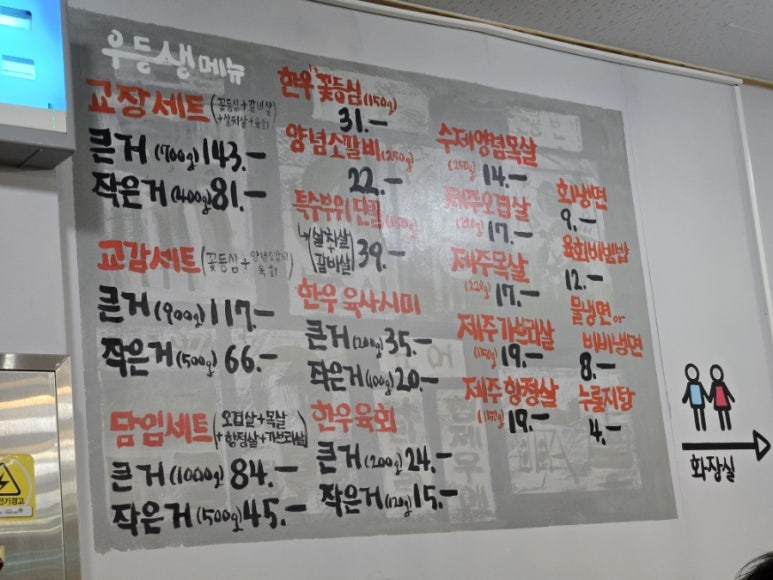 우등생 메뉴
교장세트 (꽃등심+갈비살
+살치살+육회)
큰거 (700g) 143.-
작은거 (400g) 81.-
교감세트 (꽃등심+양념소갈비
육회)
큰거 (900g) 117.-
작은거 (500g) 66.-
담임세트 (오겹살+목살
+항정살+가브리살)
큰거 (1000g) 84.-
작은거 (500g) 45.-
한우 꽃등심 (150g)
31.-
양념소갈비 (250g)
22.-
특수부위 단품 (150g)
↳(살치살
+
갈비살) 39.-
한우 육사시미
큰거 (200g) 35.-
작은거 (100g) 20.-
한우육회
큰거 (200g) 24.-
작은거 (120g) 15.-
수제양념목살
(250g) 14.-
제주오겹살
17.-
제주목살
(220g) 17.-
제주가브리살
(150g) 19.-
제주항정살
(150g) 19.-
회냉면
9.-
육회비빔밥
12.-
물냉면 or
비빔냉면
8.-
누룽지탕
4.-
화장실
전기경고